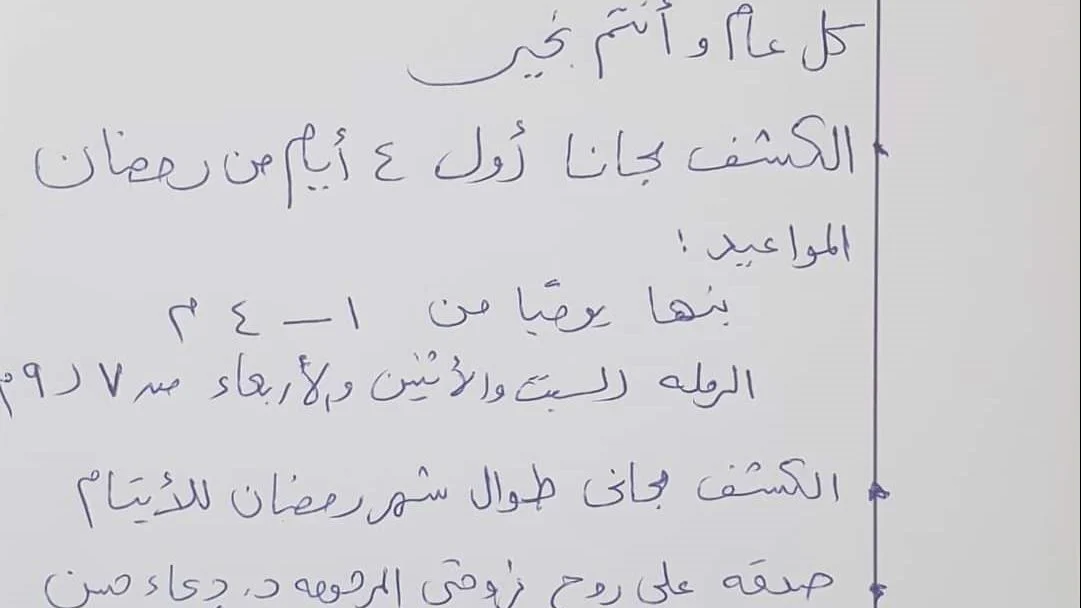 كل عام وأنتم بخير
الكشف مجانا أول ٤ أيام من رمضان
المواعيد :
بنها يوميًا من ١ – ٤ م
الرمله السبت والأثنين والأربعاء من ٧ ر ٩ م
الكشف مجانى طوال شهر رمضان للأيتام
صدقه على روح زوجتى المرحومه د. دعاء حسن